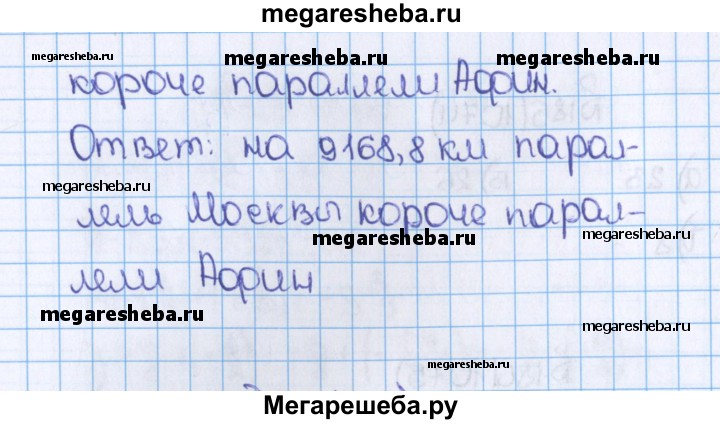 megaresheba.ru
megaresheba.ru megaresheba.ru megaresheba.ru
короче параллели Афин.
Ответ: на 9168,8 км парал-
megaresheba.ru
лель Москвы короче парал-
megaresheba.ru megaresheba.ru
лели Афин
megaresheba.ru
megaresheba.ru
megaresheba.ru
Мегарешеба.ру